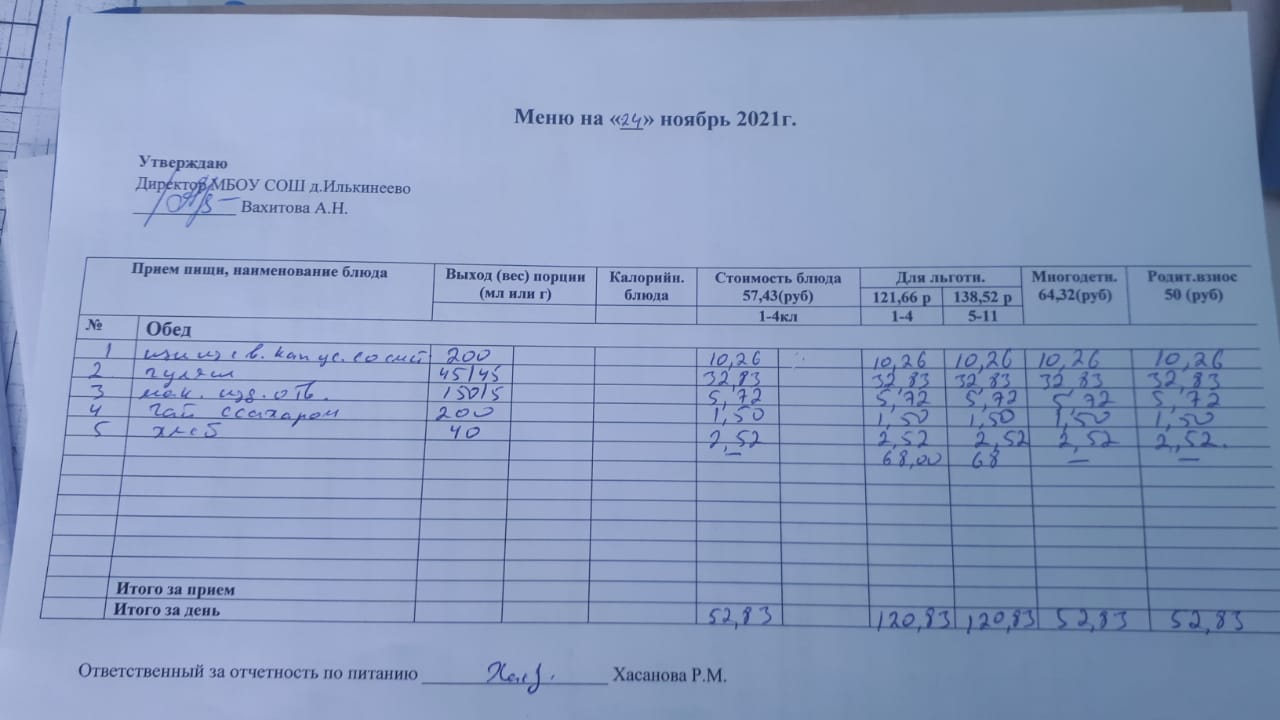 Меню на «24» ноябрь 2021г.
Утверждаю
Директор МБОУ СОШ д.Илькинеево
Вахитова А.Н.
Прием пищи, наименование блюда Выход (вес) порции (мл или г) Калорийн. блюда Стоимость блюда 57,43(руб) Для льготн. Многодетн. 64,32(руб) Родит.взнос 50 (руб)
121,66 р 138,52 р
1-4кл 1-4 5-11
№ Обед
1 щи из св. капус. со смет 200 10,26 10,26 10,26 10,26 10,26
2 гуляш 45/45 32,83 32,83 32,83 32,83 32,83
3 мак. изд. отв. 150/5 5,72 5,72 5,72 5,72 5,72
4 чай с сахаром 200 1,50 1,50 1,50 1,50 1,50
5 хлеб 40 2,52 2,52 2,52 2,52 2,52.
— 68,00 68 — —
Итого за прием
Итого за день 52,83 120,83 120,83 52,83 52,83
Ответственный за отчетность по питанию Хасанова Р.М.